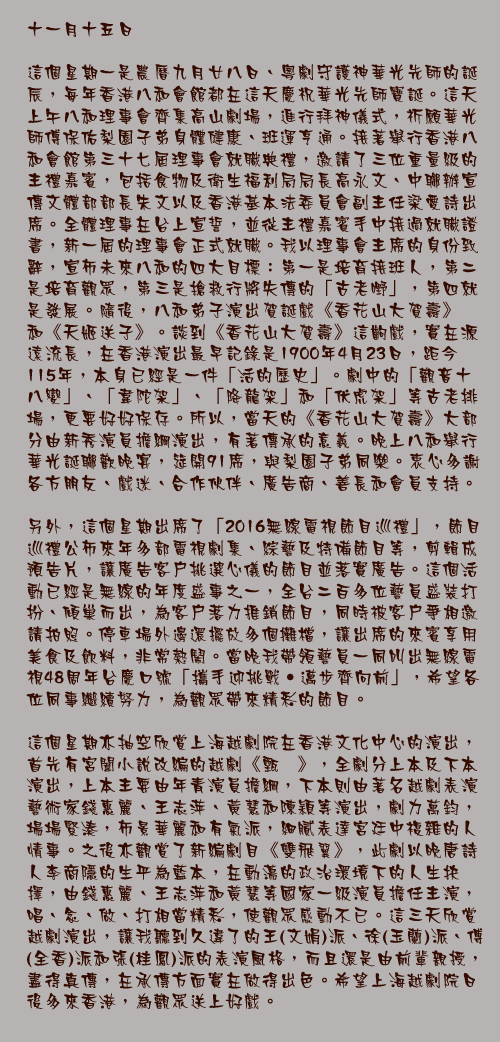 十一月十五日
這個星期一是農曆九月廿八日、粵劇守護神華光先師的誕
辰，每年香港八和會館都在這天慶祝華光先師寶誕。這天
上午八和理事會齊集高山劇場，進行拜神儀式，祈願華光
師傅保佑梨園子弟身體健康、班運亨通。接著舉行香港八
和會館第三十七屆理事會就職典禮，邀請了三位重量級的
主禮嘉賓，包括食物及衛生福利局局長高永文、中聯辦宣
傳文體部部長朱文以及香港基本法委員會副主任梁愛詩出
席。全體理事在台上宣誓，並從主禮嘉賓手中接過就職證
書，新一屆的理事會正式就職。我以理事會主席的身份致
辭，宣布未來八和的四大目標：第一是培育接班人，第二
是培育觀眾，第三是搶救行將失傳的「古老戲」，第四就
是發展。隨後，八和弟子演出賀誕戲《香花山大賀壽》
和《天姬送子》。談到《香花山大賀壽》這齣戲，實在源
遠流長，在香港演出最早記錄是1900年4月23日，距今
115年，本身已經是一件「活的歷史」。劇中的「觀音十
八變」、「韋陀架」、「降龍架」和「伏虎架」等古老排
場，更要好好保存。所以，當天的《香花山大賀壽》大部
分由新秀演員擔綱演出，有著傳承的意義。晚上八和舉行
華光誕聯歡晚宴，筵開91席，與梨園子弟同樂。衷心多謝
各方朋友、戲迷、合作伙伴、廣告商、善長和會員支持。
另外，這個星期出席了「2016無線電視節目巡禮」，節目
巡禮公布來年多部電視劇集、綜藝及特備節目等，剪輯成
預告片，讓廣告客戶挑選心儀的節目並落實廣告。這個活
動已經是無線的年度盛事之一，全台二百多位藝員盛裝打
扮、傾巢而出，為客戶落力推銷節目，同時被客戶爭相邀
請拍照。停車場外邊還擺放多個攤檔，讓出席的來賓享用
美食及飲料，非常熱鬧。當晚我帶領藝員一同叫出無線電
視48周年台慶口號「攜手迎挑戰•邁步齊向前」，希望各
位同事繼續努力，為觀眾帶來精彩的節目。
這個星期亦抽空欣賞上海越劇院在香港文化中心的演出，
首先有宮闈小說改編的越劇《甄　》，全劇分上本及下本
演出，上本主要由年青演員擔綱，下本則由著名越劇表演
藝術家錢惠麗、王志萍、黃慧和陳穎等演出，劇力萬鈞，
場場緊湊，布景華麗和有氣派，細膩表達宮廷中複雜的人
情事。之後亦觀賞了新編劇目《雙飛翼》，此劇以晚唐詩
人李商隱的生平為藍本，在動蕩的政治環境下的人生抉
擇，由錢惠麗、王志萍和黃慧等國家一級演員擔任主演，
唱、念、做、打相當精彩，使觀眾感動不已。這三天欣賞
越劇演出，讓我聽到久違了的王(文娟)派、徐(玉蘭)派、傅
(全香)派和張(桂鳳)派的表演風格，而且還是由前輩親授，
盡得真傳，在承傳方面實在做得出色。希望上海越劇院日
後多來香港，為觀眾送上好戲。